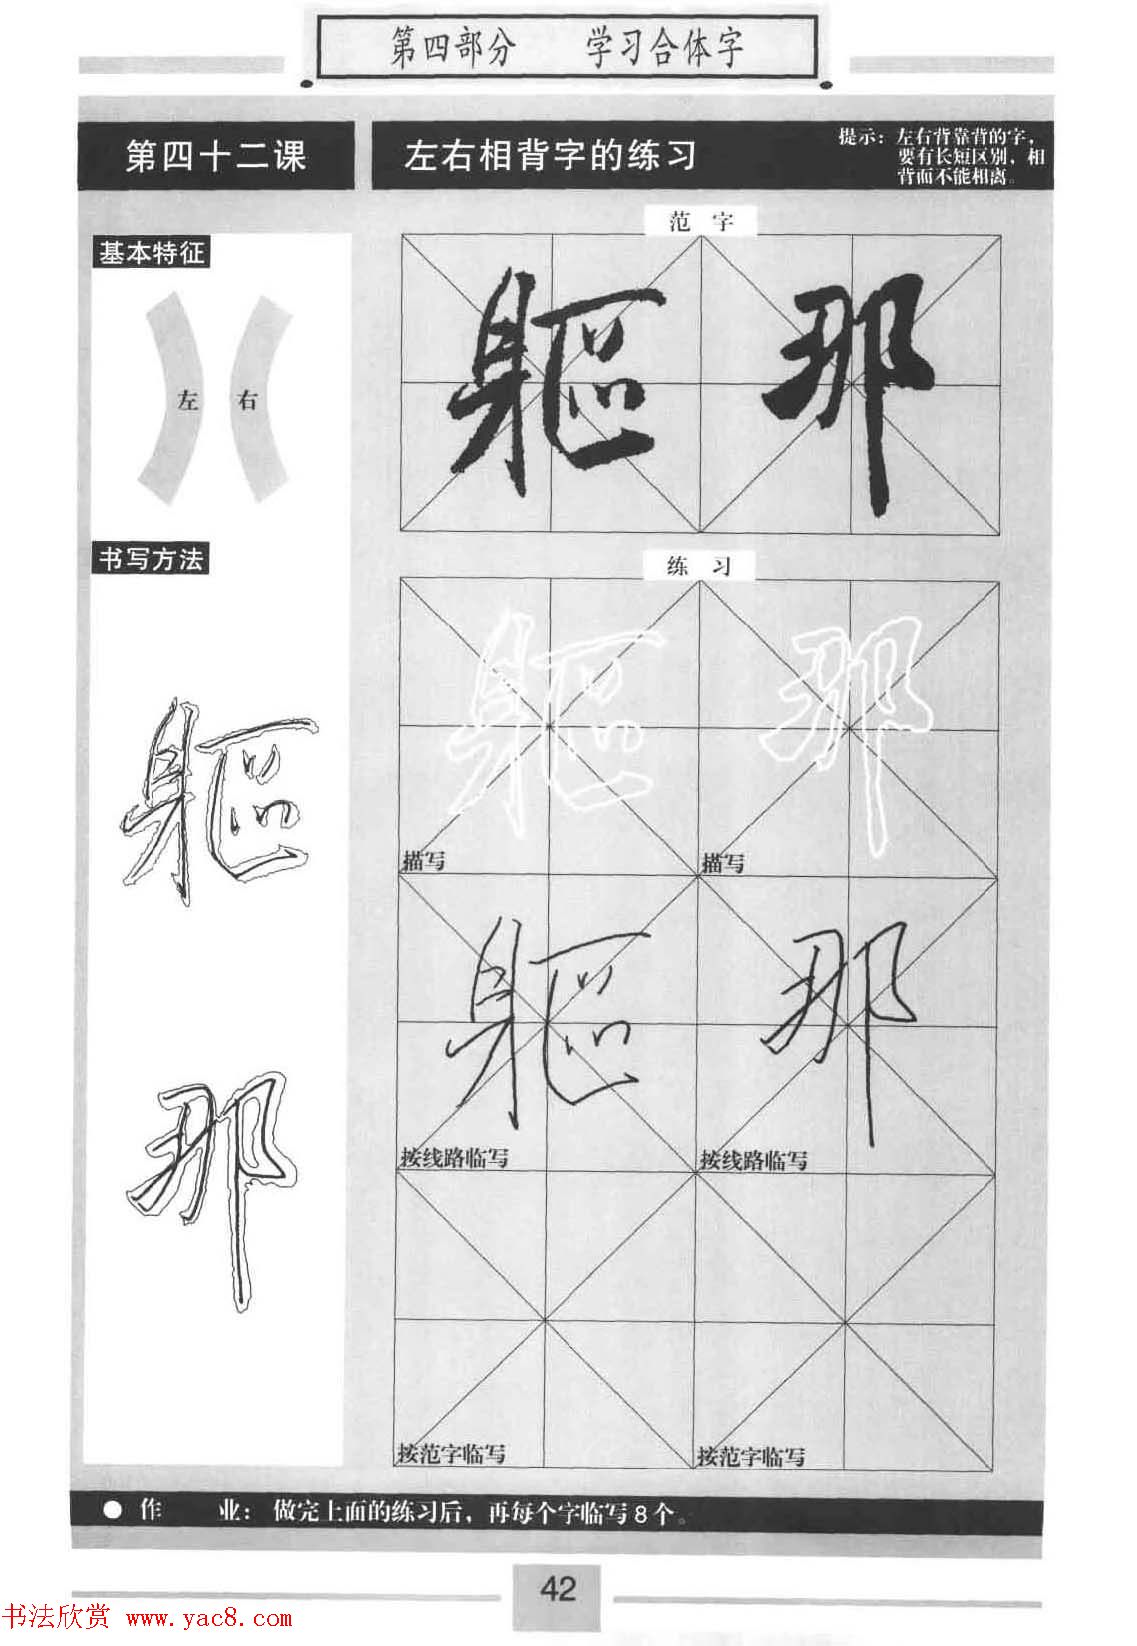 第四部分 学习合体字
第四十二课
左右相背字的练习
提示：左右背靠背的字，
要有长短区别，相
背而不能相离。
基本特征
左 右
范 字
軀 那
书写方法
軀
那
练 习
軀 那
描写 描写
軀 那
按线路临写 按线路临写
按范字临写 按范字临写
● 作 业：做完上面的练习后，再每个字临写8个。
42
书法欣赏 www.yac8.com